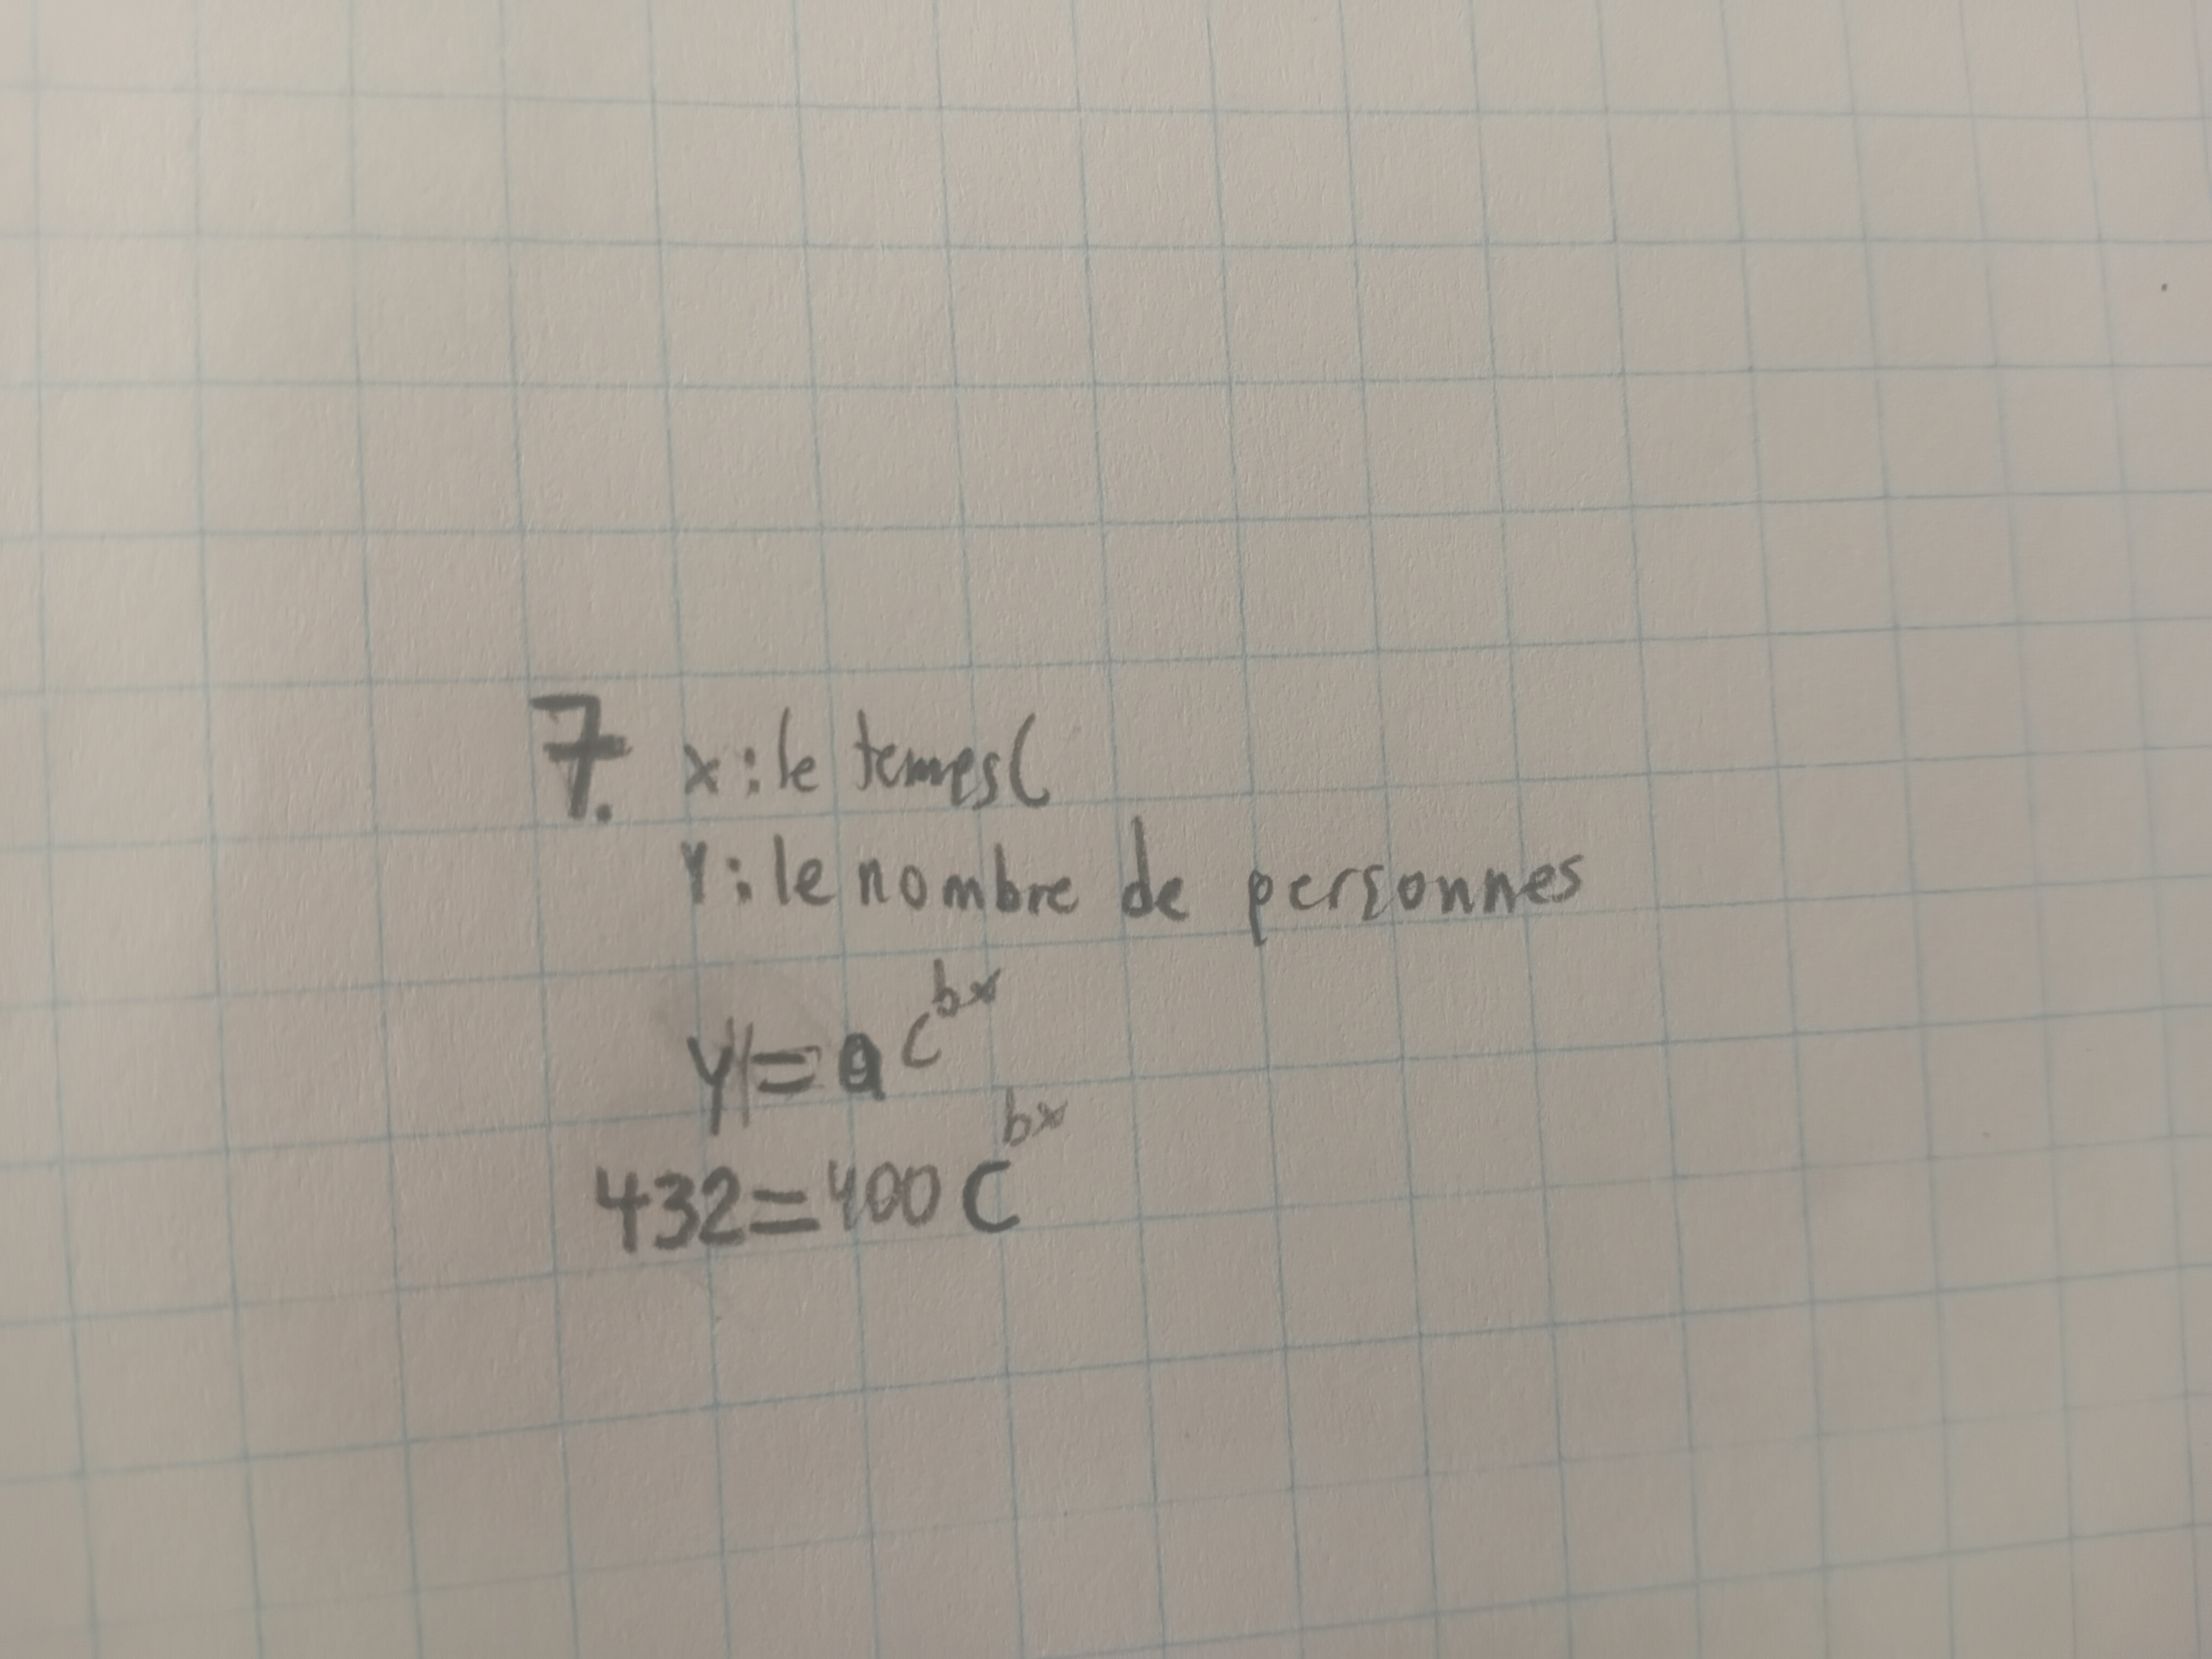 7. x : le temps (
y : le nombre de personnes
y = a c^bx
432 = 400 c^bx